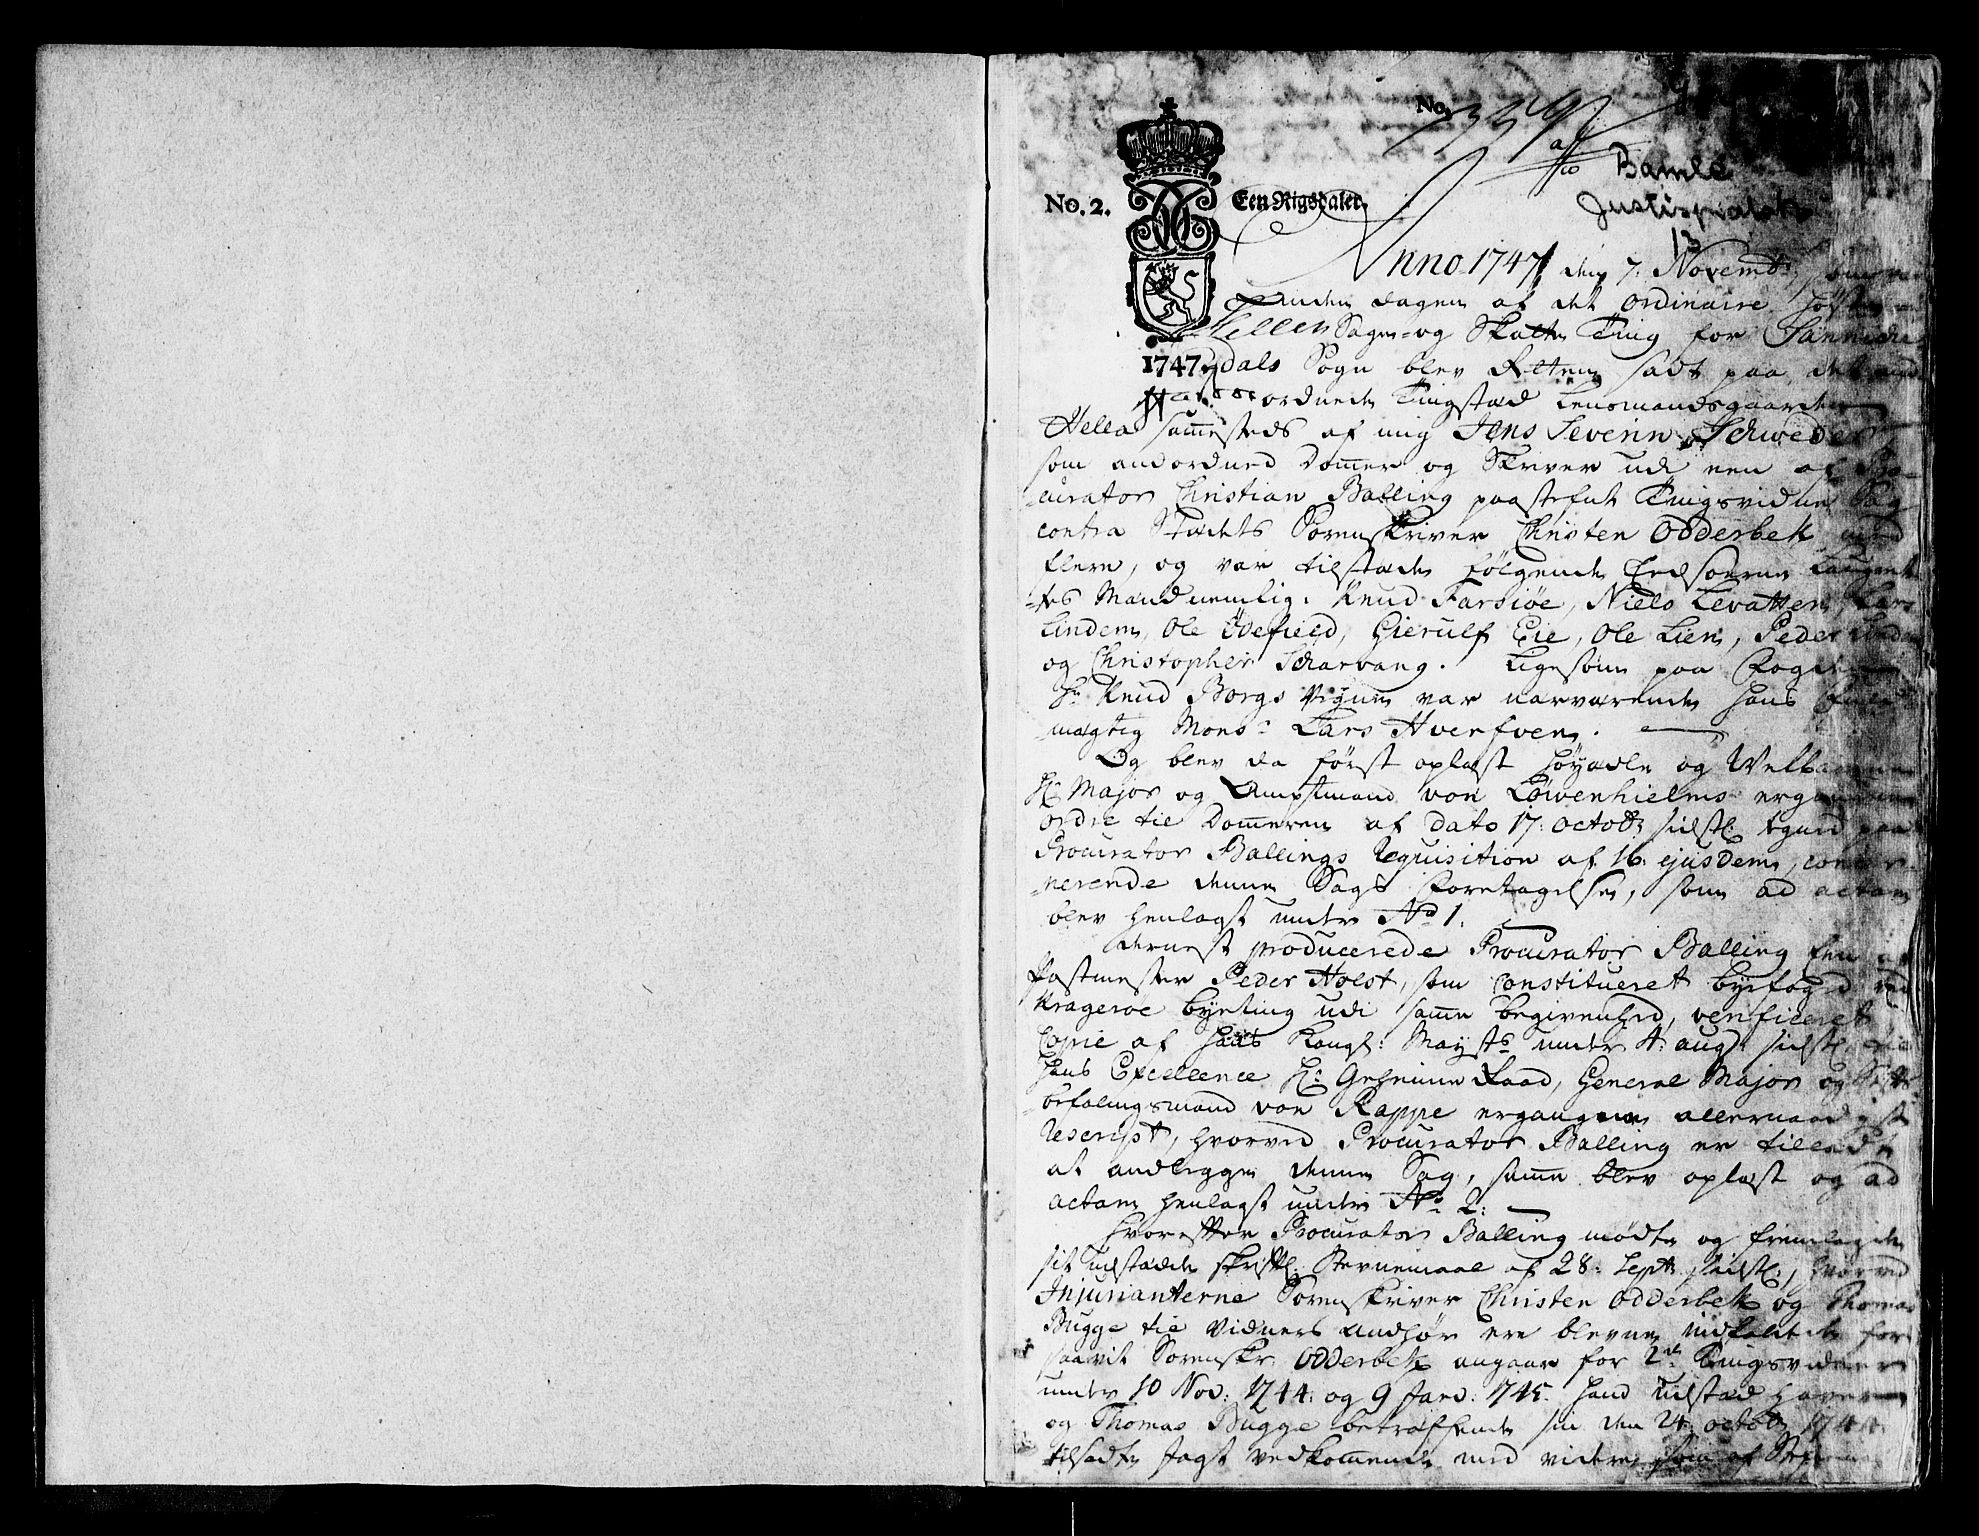 No. 7359
Bamle
No. 2.
Een Rigsdaler.
Justisprotok
13
Anno 1747 den 7. Novemb: som var
anden dagen af det ordinaire Høste
Sage- og Skatte Ting for Sannicke
1747.
dals Sogn blev Retten sadt paa det
ordnede Tingstæd Lensmandsgaarden
Hella sammesteds af mig Jens Severin Schweder
som anordned Dommer og Skriver udi een af Pro-
curator Christian Balling paastefnt Tingsvidne Sag
contra Stædets Sorenskriver Christen Odderbek med
flere, og var tilstæde følgende Eedsoerne Laugret-
tes Mænd nemlig: Knud Farsiøe, Niels Levatten, Lars
Linden, Ole Ødefield, Gierulf Eie, Ole Lien, Peder Linden
og Christopher Scharvang. Ligesom paa Fogdens
Hr Knud Borgs Vegne var nærværende hans Fuld-
mægtig Monsr Lars Hverfven.
Og blev da først oplæst Høyædle og Velbaarne
Hr Major og Amptmand von Løwenhielms ergangne
ordre til Dommeren af dato 17: octobr sidstl: tegned paa
Procurator Ballings Requisition af 16. ejusdem, concer-
nerende denne Sags Foretagelse, som ad actam
blev henlagt under No 1.
dernest producerede Procurator Balling Een af
Postmester Peder Holst, som constitueret byefogd ved
Kragerøe byeting udi samme begivenhed, verificeret
Copie af Hans Kongl: Maysts under 4. aug: sidstl: til
hans Excellence Hr Geheime Raad, General Major og Stift
befalingsmand von Rappe ergangne allernaadigst
Rescript, hvorved Procurator Balling er tilladt
at anlegge denne Sag, samme blev oplæst og ad
actam henlagt under No 2.
Hvorefter Procurator Balling mødte og fremlagde
sit udstædde skriftl: Stevnemaal af 28: Septr sidstl:, hvorved
Injurianterne Sorenskriver Christen Odderbek og Thomas
Bugge til Vidners anhør ere blevne indkaldede for
saavit Sorenskr: Odderbek angaar for 2de Tingsvidner
under 10 Nov: 1744: og 9 Janv: 1745. hand udstæd haver
og Thomas Bugge betreffende sin den 24. octobr 1744
tilsadte fagt vedkommende med videre som af Stevne